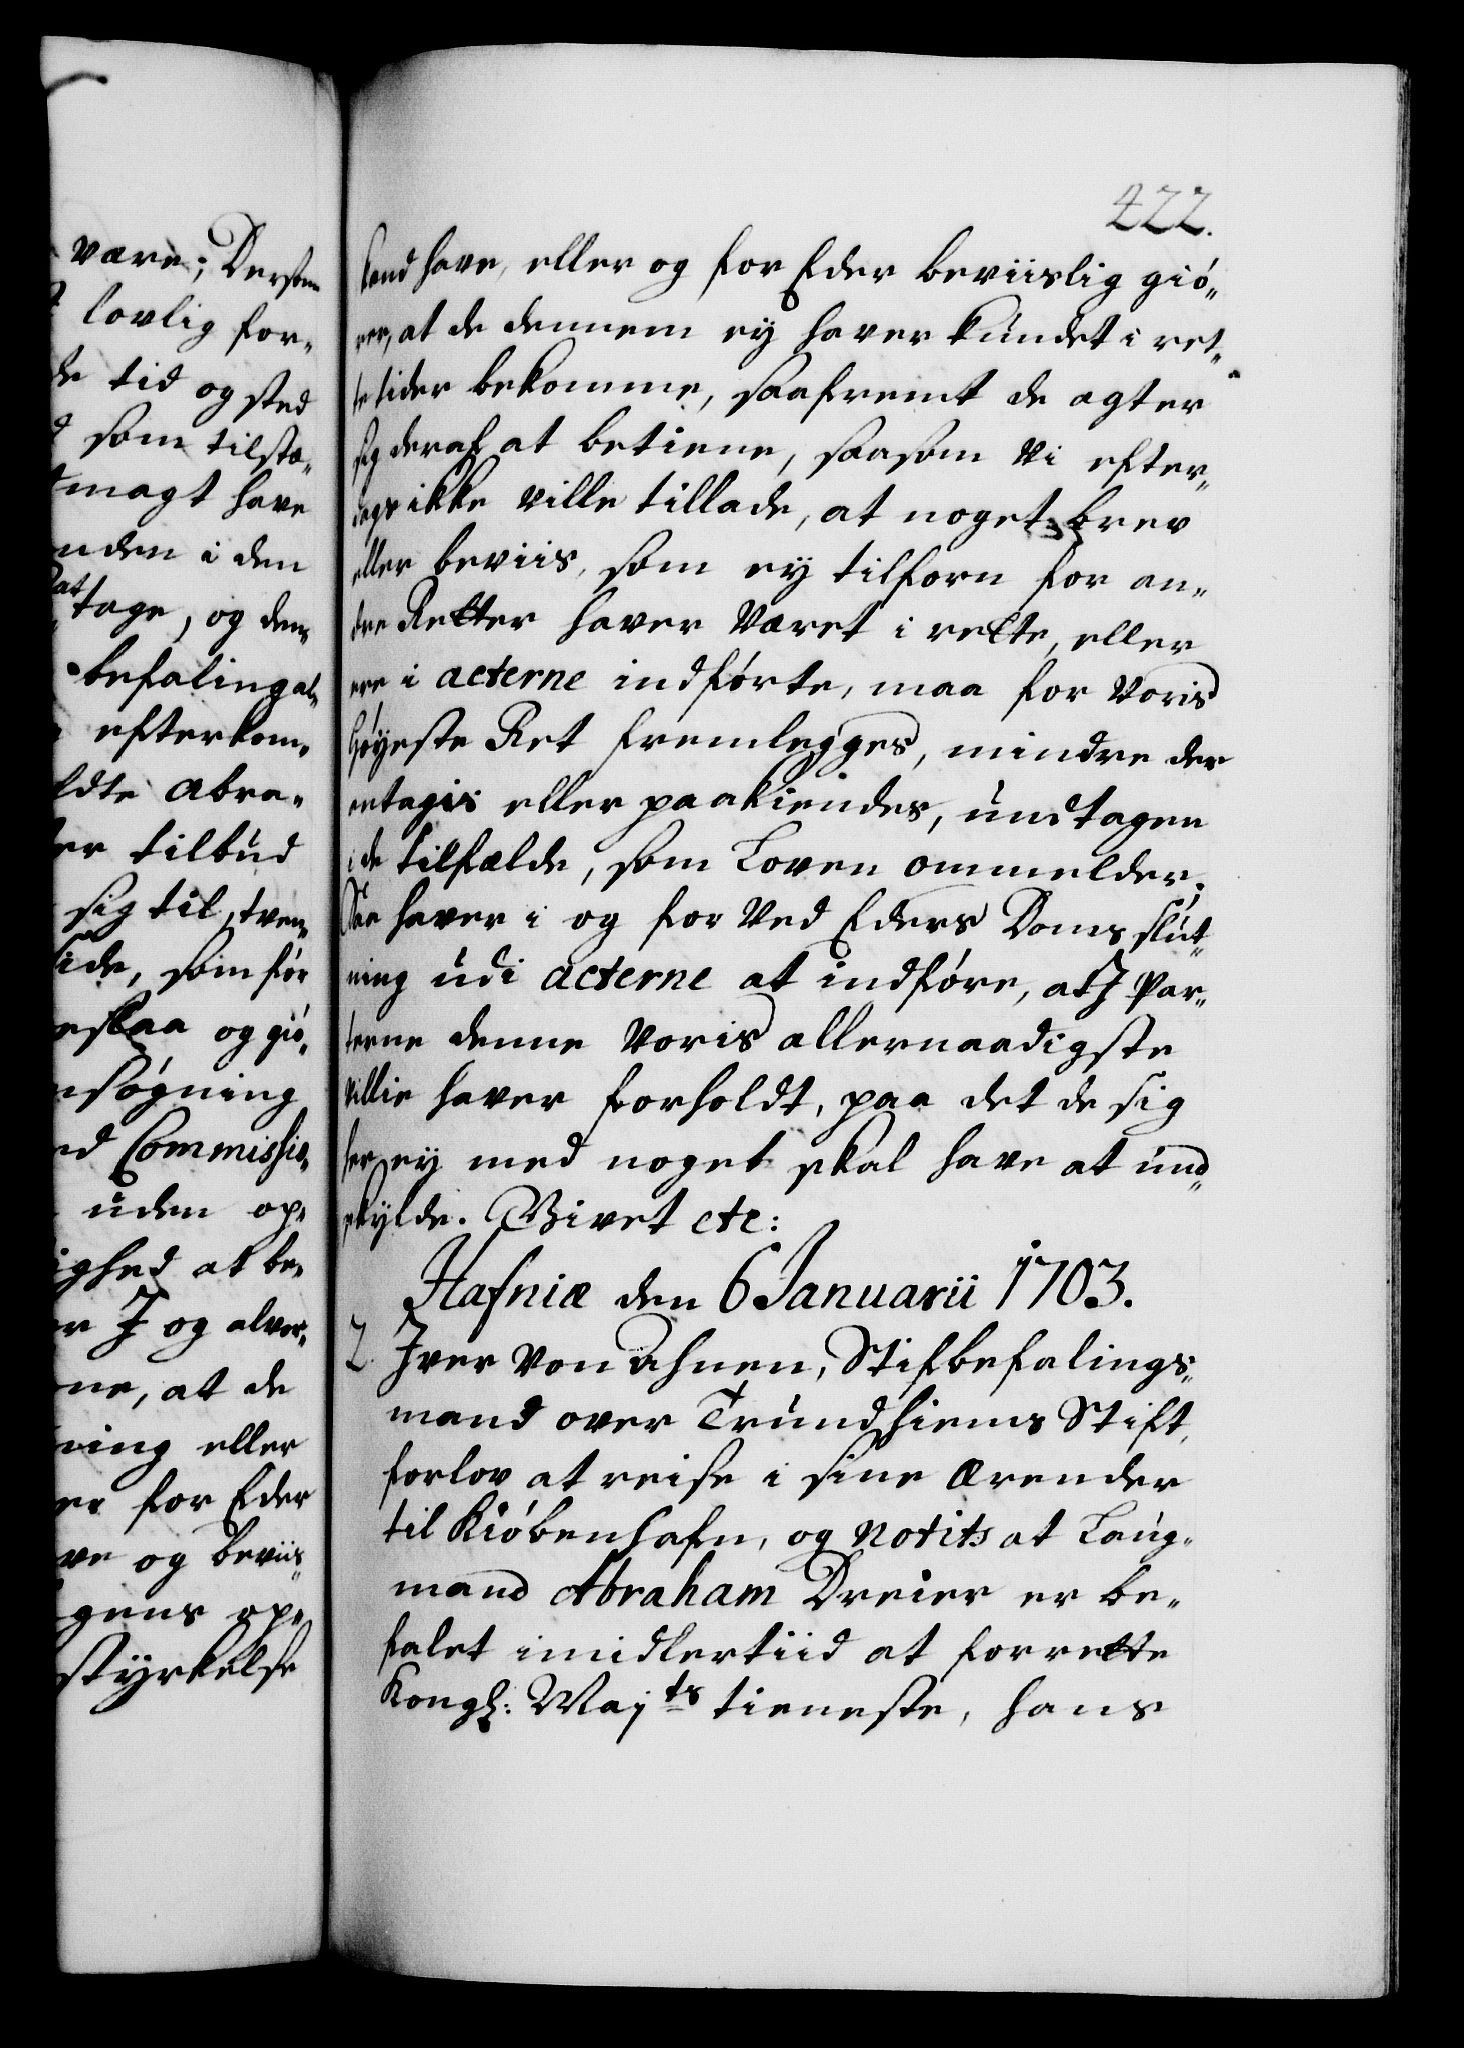 være; Dersom
lovlig for-
de tid og sted
som tilstæ-
magt have
nden i den
at tage, og dem
befaling al-
efterkom-
ldte Abra-
er tilbud
sig til, tven-
side, som før
eslaa og giö-
nsøgning
ed Commissio-
uden op-
ighed at be-
er J og alvor-
ne, at de
ning eller
er for Eder
ve og beviis-
gens op-
styrkelse
422.
kand have, eller og for Eder beviislig giö-
rer, at de dennem ey haver kundet i ret-
te tider bekomme, saafremt de agter
sig deraf at betiene, saasom Vi efter-
dags ikke ville tillade, at noget brev
eller beviis, som ey tilforn for an-
dre Retter haver Været i rette, eller
ere i acterne indförte, maa for Voris
Høyeste Ret fremlegges, mindre der
antagis eller paakiendes, undtagen
i de tilfælde, som Loven ommelder;
Saa haver i og for Ved Eders Doms slut-
ning udi acterne at indföre, at J Par-
terne denne Voris allernaadigste
Villie haver forholdt, paa det de sig
her ey med noget skal have at und-
skylde. Givet etc:
Hafniæ den 6 Januarii 1703.
2. Iver Von Ahnen, Stifbefalings-
mand over Trundhiems Stift,
forlov at reise i sine Ærender
til Kiöbenhafn, og Notits at Laug-
mand Abraham Dreier er be-
falet imidlertiid at forrette
Kongl: Majts tieneste, hans